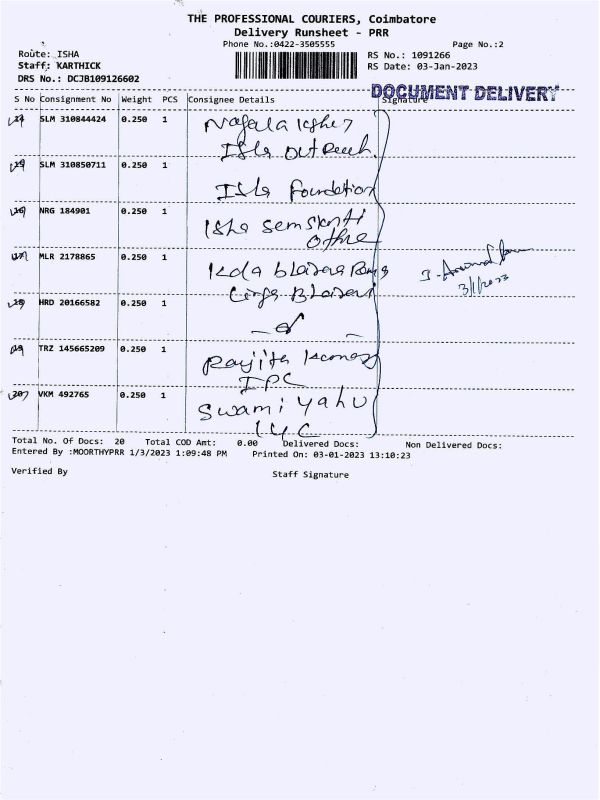 THE PROFESSIONAL COURIERS, Coimbatore
Delivery Runsheet - PRR
Phone No.:0422-3505555 Page No.:2
Route: ISHA RS No.: 1091266
Staff: KARTHICK RS Date: 03-Jan-2023
DRS No.: DCJB109126602
DOCUMENT DELIVERY
S No Consignment No Weight PCS Consignee Details Signature
14 SLM 310844424 0.250 1
Isha Out Reach
15 SLM 310850711 0.250 1 Isha Foundation
16 NRG 184901 0.250 1 Isha
17 MLR 2178865 0.250 1
3/1/2023
18 HRD 20166582 0.250 1
19 TRZ 145665209 0.250 1
IPC
20 VKM 492765 0.250 1 Swami Yahu
IYC
Total No. Of Docs: 20 Total COD Amt: 0.00 Delivered Docs: Non Delivered Docs:
Entered By :MOORTHYPRR 1/3/2023 1:09:48 PM Printed On: 03-01-2023 13:10:23
Verified By Staff Signature